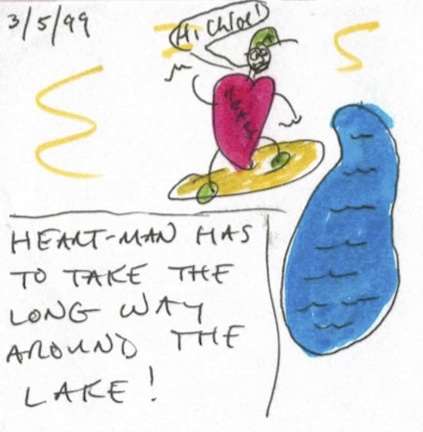 3/5/99
Hi Chloe!
HEART-MAN HAS
TO TAKE THE
LONG WAY
AROUND THE
LAKE!